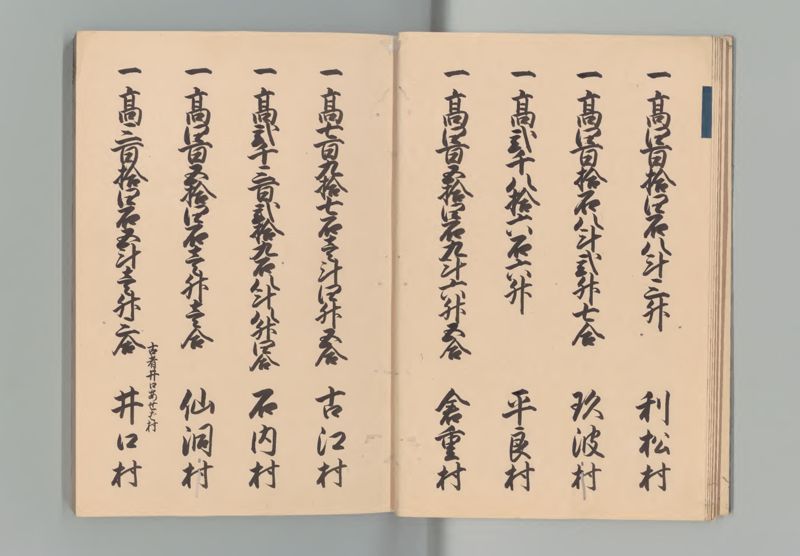 一 高四百拾四石八斗三升 利松村
一 高四百拾石八斗弐升七合 玖波村
一 高弐千八拾六石六升 平良村
一 高四百五拾四石九斗六升五合 倉重村
一 高七百九拾七石壱斗四升五合 古江村
一 高弐千三百弐拾九石八斗八升四合 石内村
一 高四百五拾四石壱升壱合 仙洞村
古者井口あせち村
一 高三百拾四石五斗壱升三合 井口村